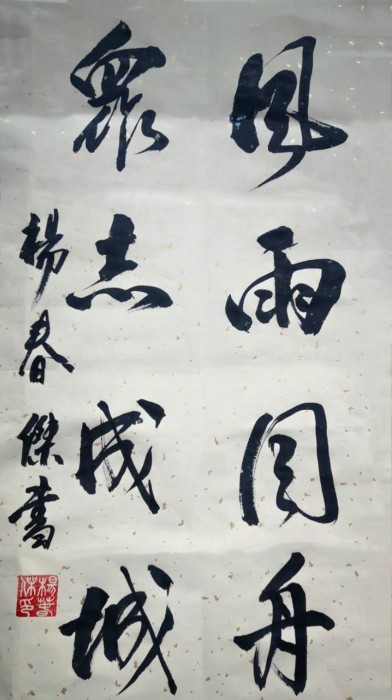 風雨同舟
眾志成城
楊春傑書